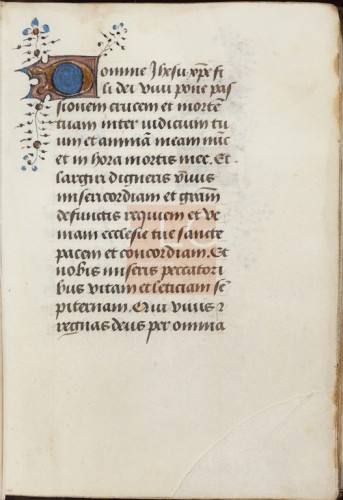 Domine Jhesu xpe fi
li dei viui pone pas
sionem crucem et mortē
tuam inter iudicium tu
um et animā meam nūc
et in hora mortis mee. Et
largiri digneris viuis
misericordiam et grām
defunctis requiem et ve
niam ecclesie tue sancte
pacem et concordiam. Et
nobis miseris peccatori
bus vitam et leticiam sē
piternam. Qui viuis z
regnas deus per omnia